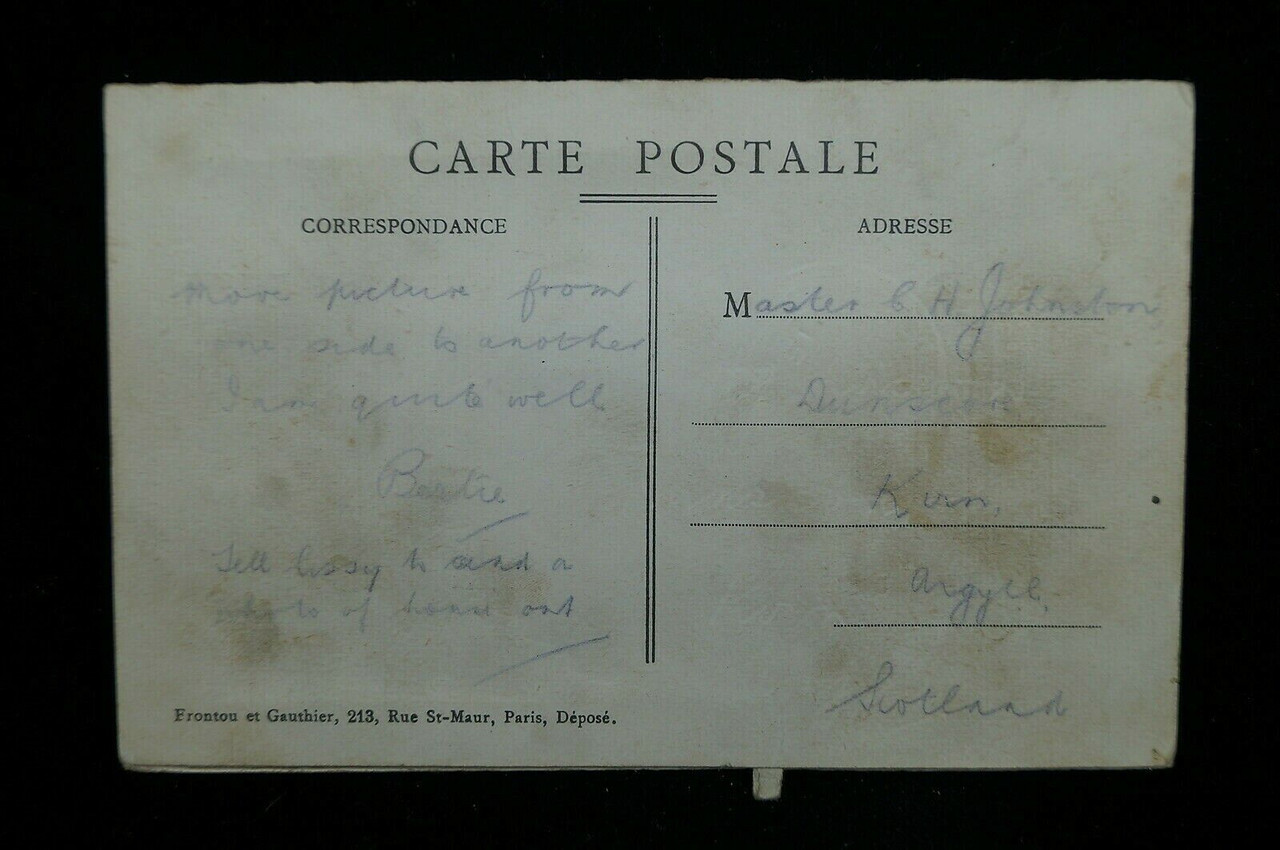 CARTE POSTALE
CORRESPONDANCE
ADRESSE
Move picture from
one side to another
I am quite well
Bertie
Tell Cissy to send a
photo of house out
Master C H Johnston
Kirn,
Argyll,
Scotland
Frontou et Gauthier, 213, Rue St-Maur, Paris, Déposé.